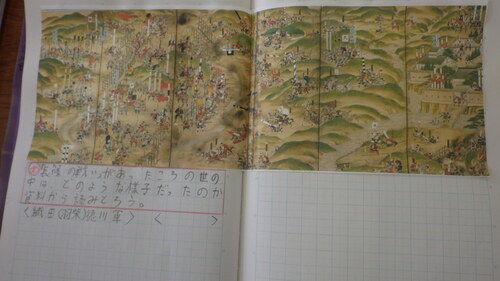 長篠の戦いがあったころの世の
中は、どのような様子だったのか
資料から読みとろう。
〈織田(羽柴)徳川軍〉〈　　　〉